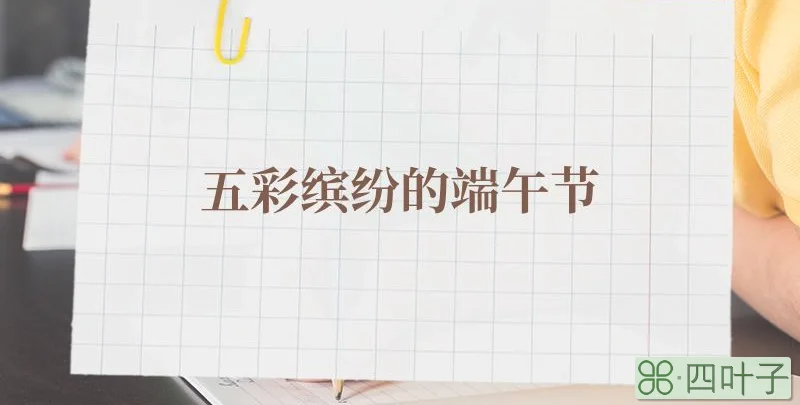 五彩缤纷的端午节
四叶子